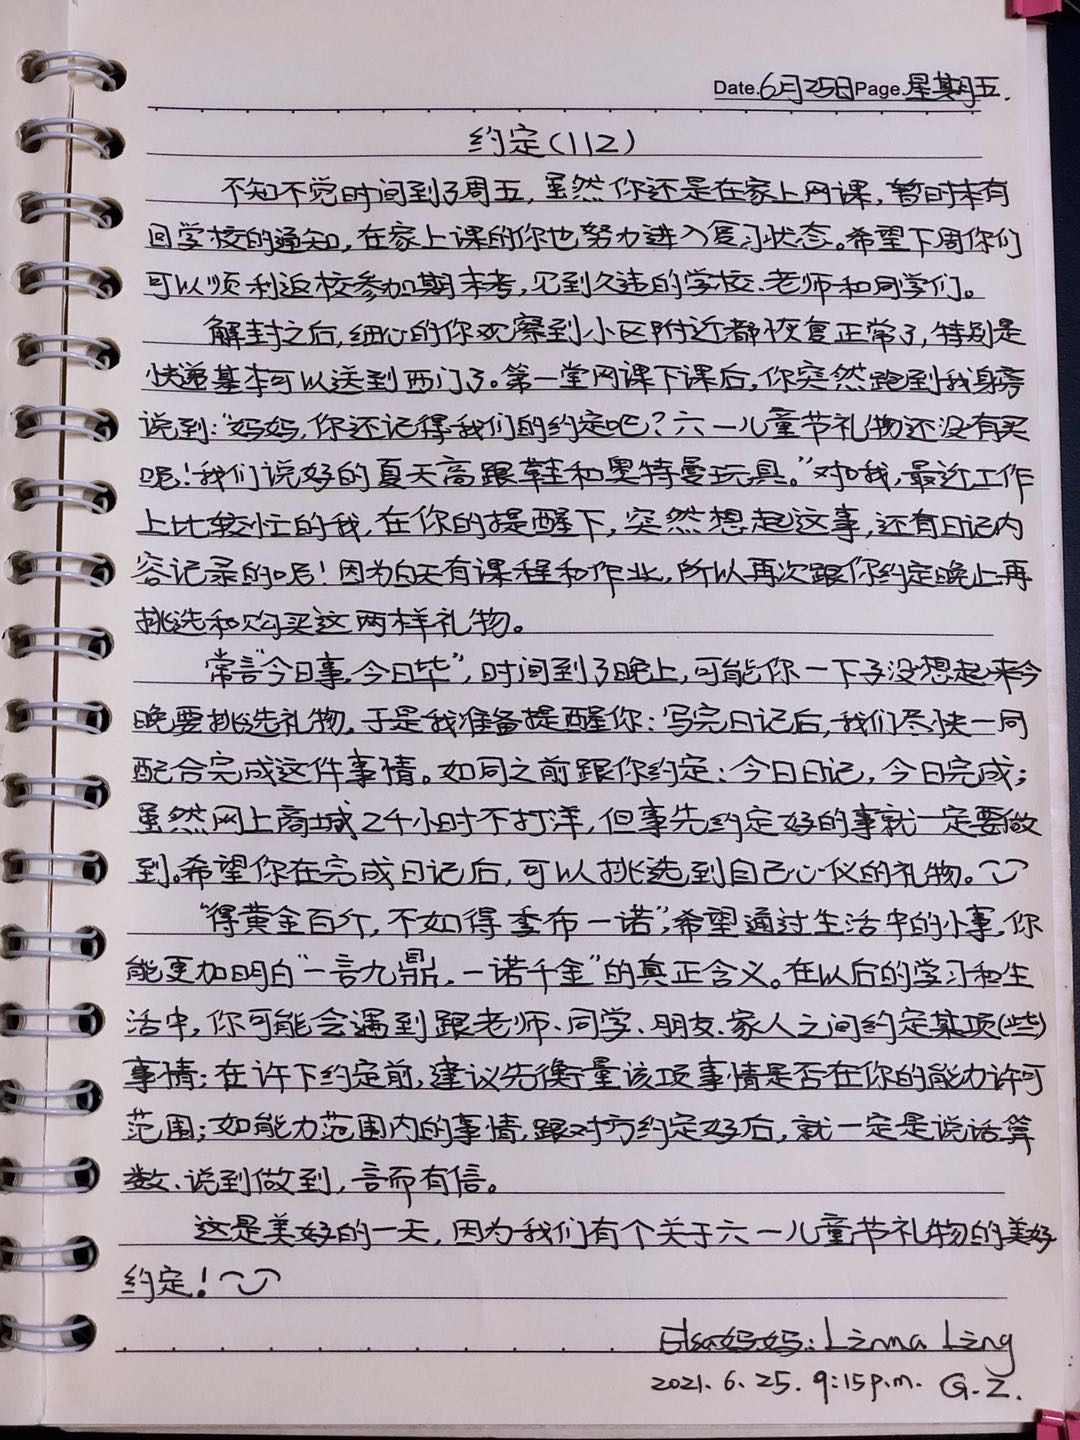 Date.6月25日Page.星期五.
约定(112)
不知不觉时间到了周五,虽然你还是在家上网课,暂时未有
回学校的通知,在家上课的你也努力进入复习状态。希望下周你们
可以顺利返校参加期末考,见到久违的学校、老师和同学们。
解封之后,细心的你观察到小区附近都恢复正常了,特别是
快递基本可以送到西门了。第一堂网课下课后,你突然跑到我身旁
说到:“妈妈,你还记得我们的约定吧?六一儿童节礼物还没有买
呢!我们说好的夏天高跟鞋和奥特曼玩具。”对哦,最近工作
上比较忙的我,在你的提醒下,突然想起这事,还有日记内
容记录的呢!因为白天有课程和作业,所以再次跟你约定晚上再
挑选和购买这两样礼物。
常言“今日事,今日毕”,时间到了晚上,可能你一下子没想起来今
晚要挑选礼物。于是我准备提醒你:写完日记后,我们尽快一同
配合完成这件事情。如同之前跟你约定:今日日记,今日完成;
虽然网上商城24小时不打洋,但事先约定好的事就一定要做
到。希望你在完成日记后,可以挑选到自己心仪的礼物。
“得黄金百斤,不如得季布一诺”;希望通过生活中的小事,你
能更加明白“一言九鼎,一诺千金”的真正含义。在以后的学习和生
活中,你可能会遇到跟老师、同学、朋友、家人之间约定某项(些)
事情;在许下约定前,建议先衡量该项事情是否在你的能力许可
范围;如能力范围内的事情,跟对方约定好后,就一定是说话算
数、说到做到,言而有信。
这是美好的一天,因为我们有个关于六一儿童节礼物的美好
约定!
妈妈:Linna Ling
2021.6.25.9:15p.m. G.Z.